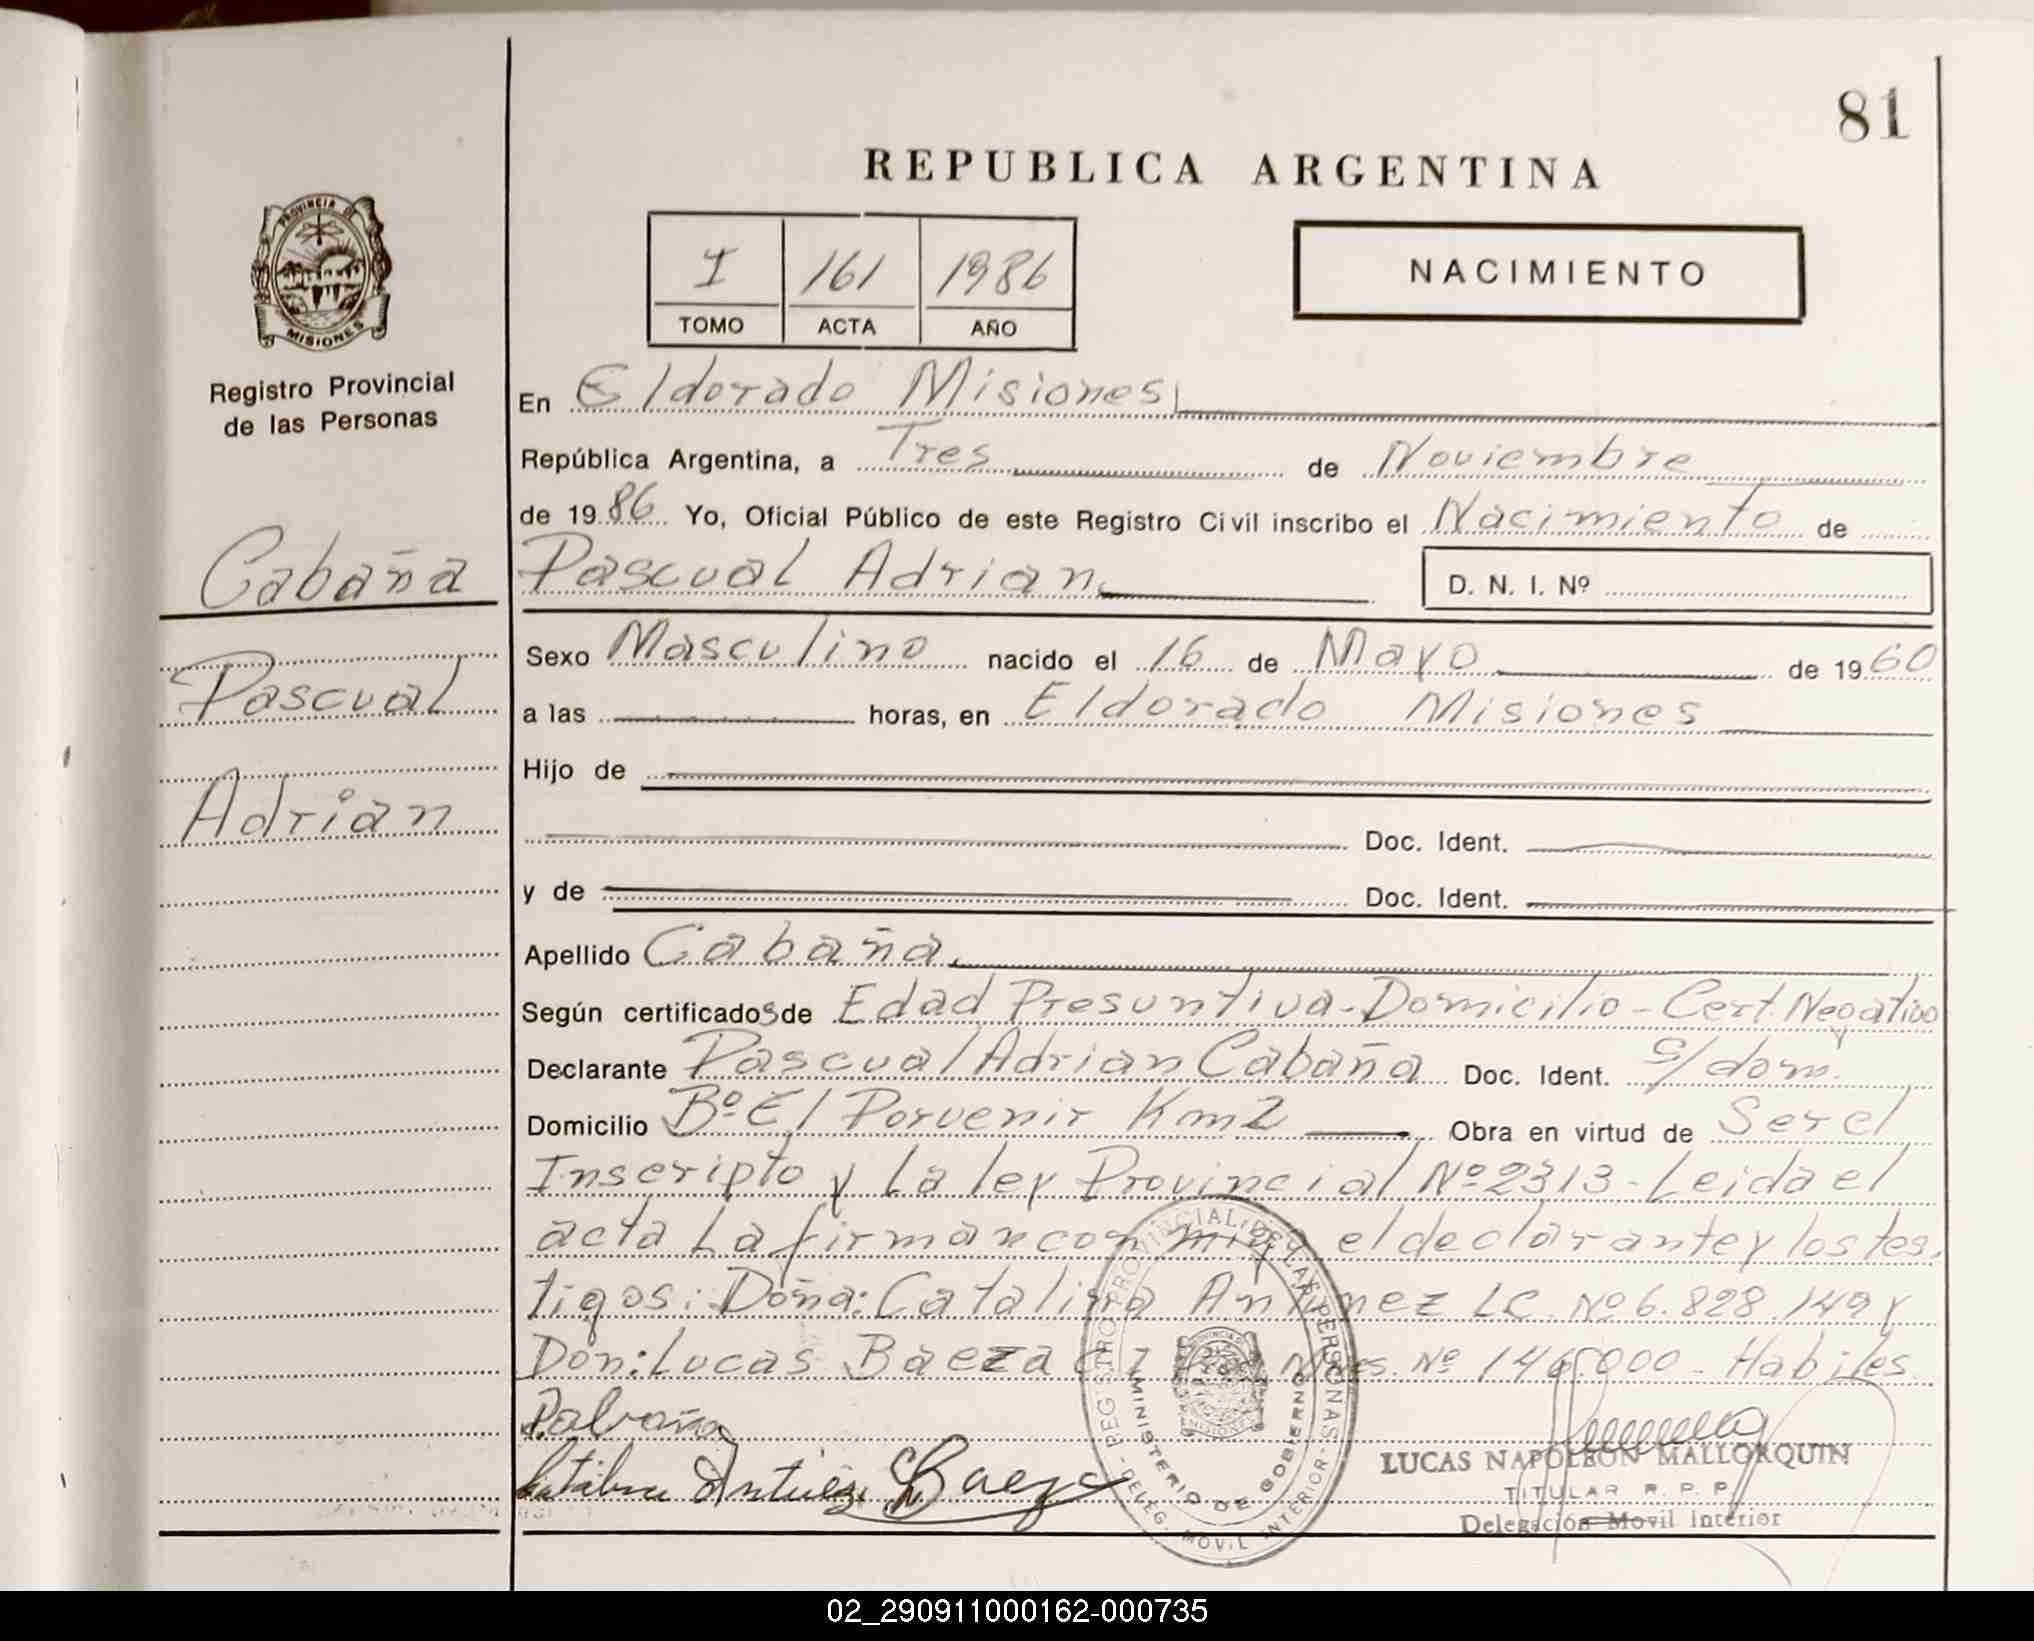 81
REPUBLICA ARGENTINA
PROVINCIA DE
MISIONES
I 161 1986
TOMO ACTA AÑO
NACIMIENTO
Registro Provincial
de las Personas
En Eldorado Misiones
República Argentina, a Tres de Noviembre
de 1986 Yo, Oficial Público de este Registro Civil inscribo el Nacimiento de
Cabaña
Pascual Adrian
D. N. I. Nº
Sexo Masculino nacido el 16 de Mayo de 1960
Pascual
a las horas, en Eldorado Misiones
Hijo de
Adrian
Doc. Ident.
y de Doc. Ident.
Apellido Cabaña
Según certificados de Edad Presuntiva-Domicilio-Cert. Negativo
Declarante Pascual Adrian Cabaña Doc. Ident. S/dom.
Domicilio Bº El Porvenir Km2 Obra en virtud de Ser el
Inscripto y La ley Provincial Nº 2313-Leida el
acta La firman con migo el declarante y los tes.
tigos: Doña: Catalina Antunez LC. Nº 6.828.149 y
Don: Lucas Baeza C I Mnes. Nº 146.000-Habiles
P. Cabaña
Catalina Antunez L Baeza
REGISTRO PROVINCIAL DE LAS PERSONAS - DELEG. MOVIL INTERIOR -
MINISTERIO DE GOBIERNO
LUCAS NAPOLEON MALLORQUIN
TITULAR R. P. P.
Delegación Movil Interior
02_290911000162-000735